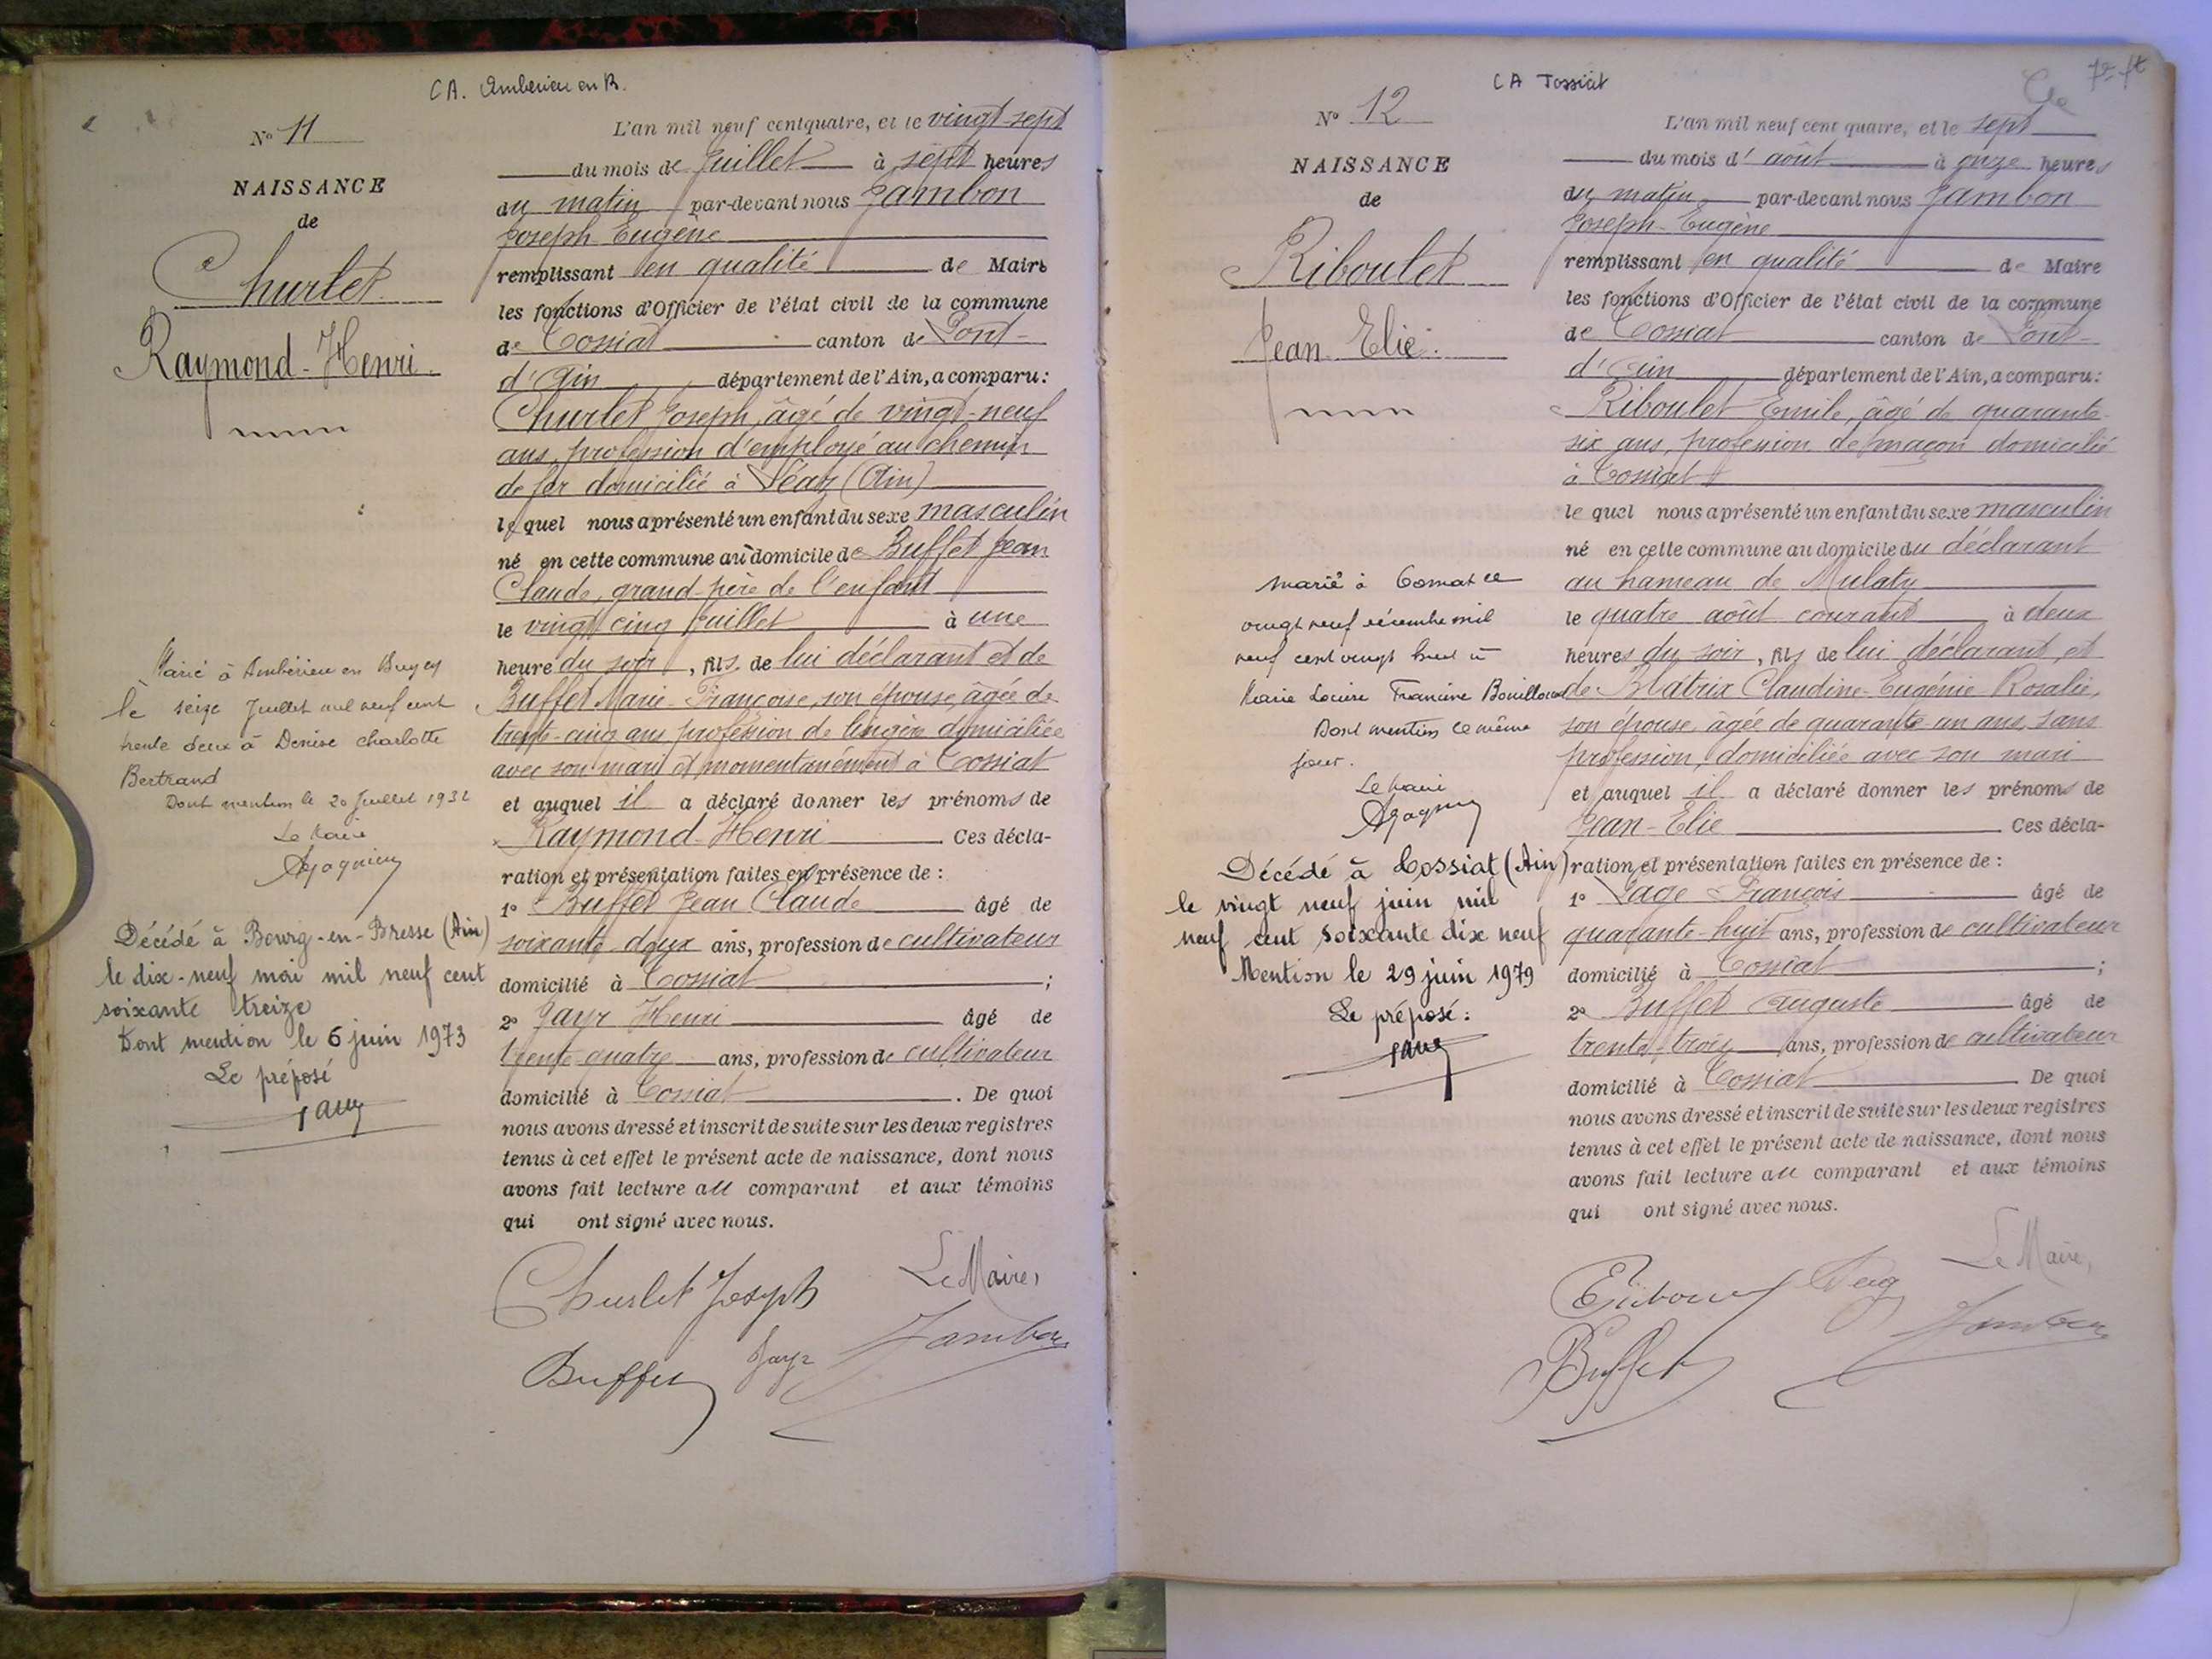 CA. Ambérieu en B.
N° 11
NAISSANCE
de
Churlet
Raymond-Henri
L'an mil neuf cent quatre, et le vingt-sept
du mois de juillet à sept heures
du matin par-devant nous Jambon
Joseph Eugène
remplissant en qualité de Maire
les fonctions d'Officier de l'état civil de la commune
de Tossiat canton de Pont-
d'Ain département de l'Ain, a comparu:
Churlet Joseph, âgé de vingt-neuf
ans, profession d'employé au chemin
de fer domicilié à Léaz (Ain)
lequel nous a présenté un enfant du sexe masculin
né en cette commune au domicile de Buffet Jean
Claude, grand-père de l'enfant
le vingt cinq juillet à une
heure du soir, fils de lui déclarant et de
Buffet Marie-Françoise, son épouse, âgée de
trente-cinq ans profession de lingère domiciliée
avec son mari et momentanément à Tossiat
et auquel il a déclaré donner les prénoms de
Raymond-Henri Ces décla-
ration et présentation faites en présence de :
1° Buffet Jean Claude âgé de
soixante deux ans, profession de cultivateur
domicilié à Tossiat ;
2° Jayr Henri âgé de
trente-quatre ans, profession de cultivateur
domicilié à Tossiat . De quoi
nous avons dressé et inscrit de suite sur les deux registres
tenus à cet effet le présent acte de naissance, dont nous
avons fait lecture au comparant et aux témoins
qui ont signé avec nous.
Churlet Joseph Le Maire,
Buffet Jayr Jambon
Marié à Ambérieu en Bugey
le seize Juillet mil neuf cent
trente deux à Denise Charlotte
Bertrand
Dont mention le 20 Juillet 1932
Le Maire
Décédé à Bourg-en-Bresse (Ain)
le dix-neuf mai mil neuf cent
soixante treize
Dont mention le 6 juin 1973
Le préposé
CA Tossiat
N° 12
NAISSANCE
de
Riboulet
Jean Elie.
L'an mil neuf cent quatre, et le sept
du mois d'août à onze heures
du matin par-devant nous Jambon
Joseph-Eugène
remplissant en qualité de Maire
les fonctions d'Officier de l'état civil de la commune
de Tossiat canton de Pont-
d'Ain département de l'Ain, a comparu:
Riboulet Emile, âgé de quarante-
six ans, profession de maçon domicilié
à Tossiat
lequel nous a présenté un enfant du sexe masculin
né en cette commune au domicile du déclarant
au hameau de Mulaty
le quatre août courant à deux
heures du soir, fils de lui déclarant et
de Blatrix Claudine-Eugénie Rosalie,
son épouse, âgée de quarante-un ans, sans
profession, domiciliée avec son mari
et auquel il a déclaré donner les prénoms de
Jean-Elie Ces décla-
ration et présentation faites en présence de :
1° Page François âgé de
quarante-huit ans, profession de cultivateur
domicilié à Tossiat ;
2° Buffet Auguste âgé de
trente-trois ans, profession de cultivateur
domicilié à Tossiat De quoi
nous avons dressé et inscrit de suite sur les deux registres
tenus à cet effet le présent acte de naissance, dont nous
avons fait lecture au comparant et aux témoins
qui ont signé avec nous.
Le Maire,
Buffet Jambon
Marié à Tossiat ce
vingt neuf décembre mil
neuf cent vingt huit à
Marie Louise Francine
Dont mention ce même
jour.
Le Maire
Décédé à Tossiat (Ain)
le vingt neuf juin mil
neuf cent soixante dix neuf
Mention le 29 juin 1979
Le préposé :